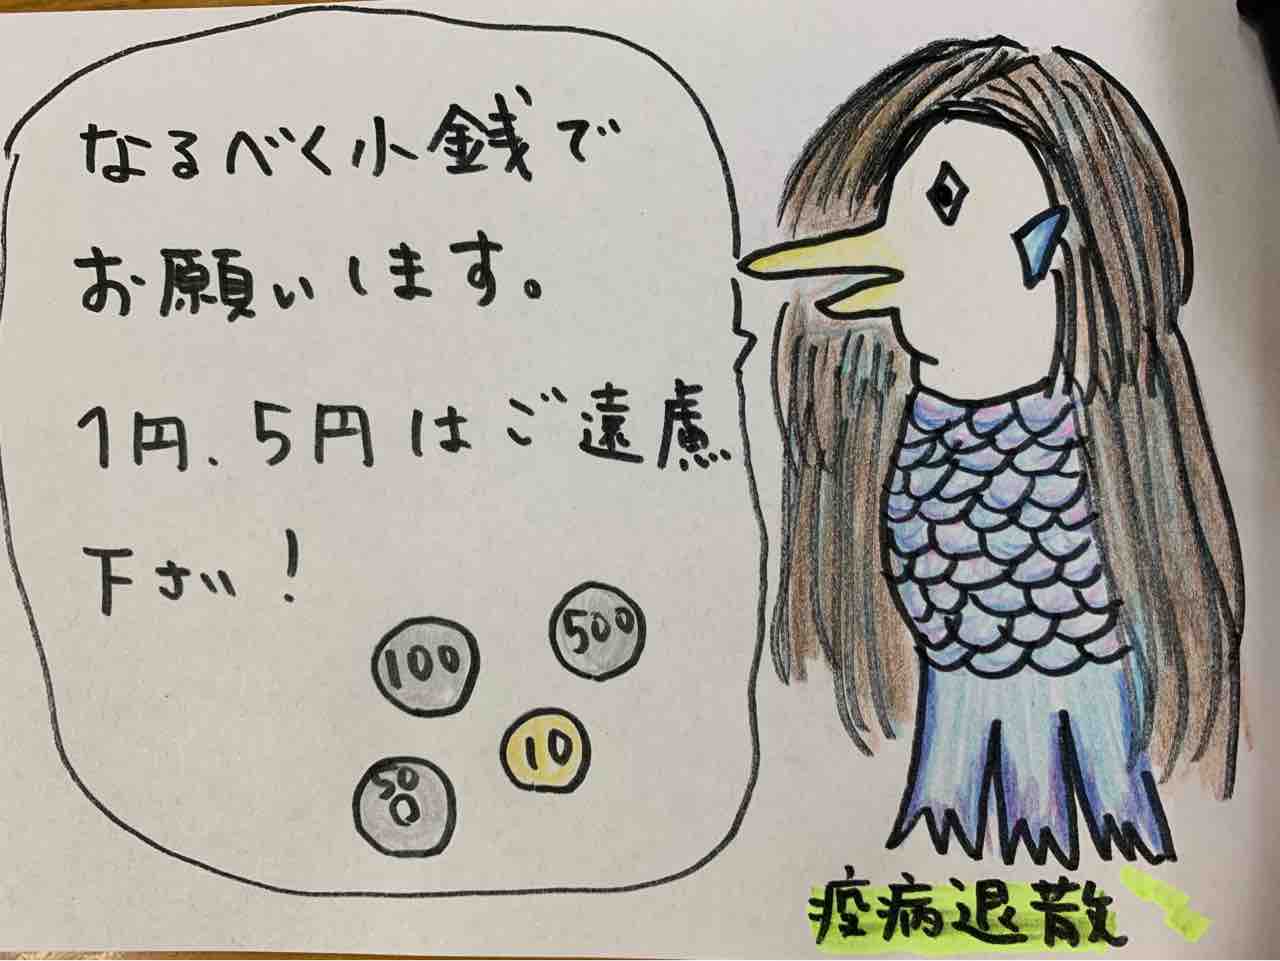 なるべく小銭で
お願いします。
1円、5円はご遠慮
下さい!
100
500
10
50
疫病退散